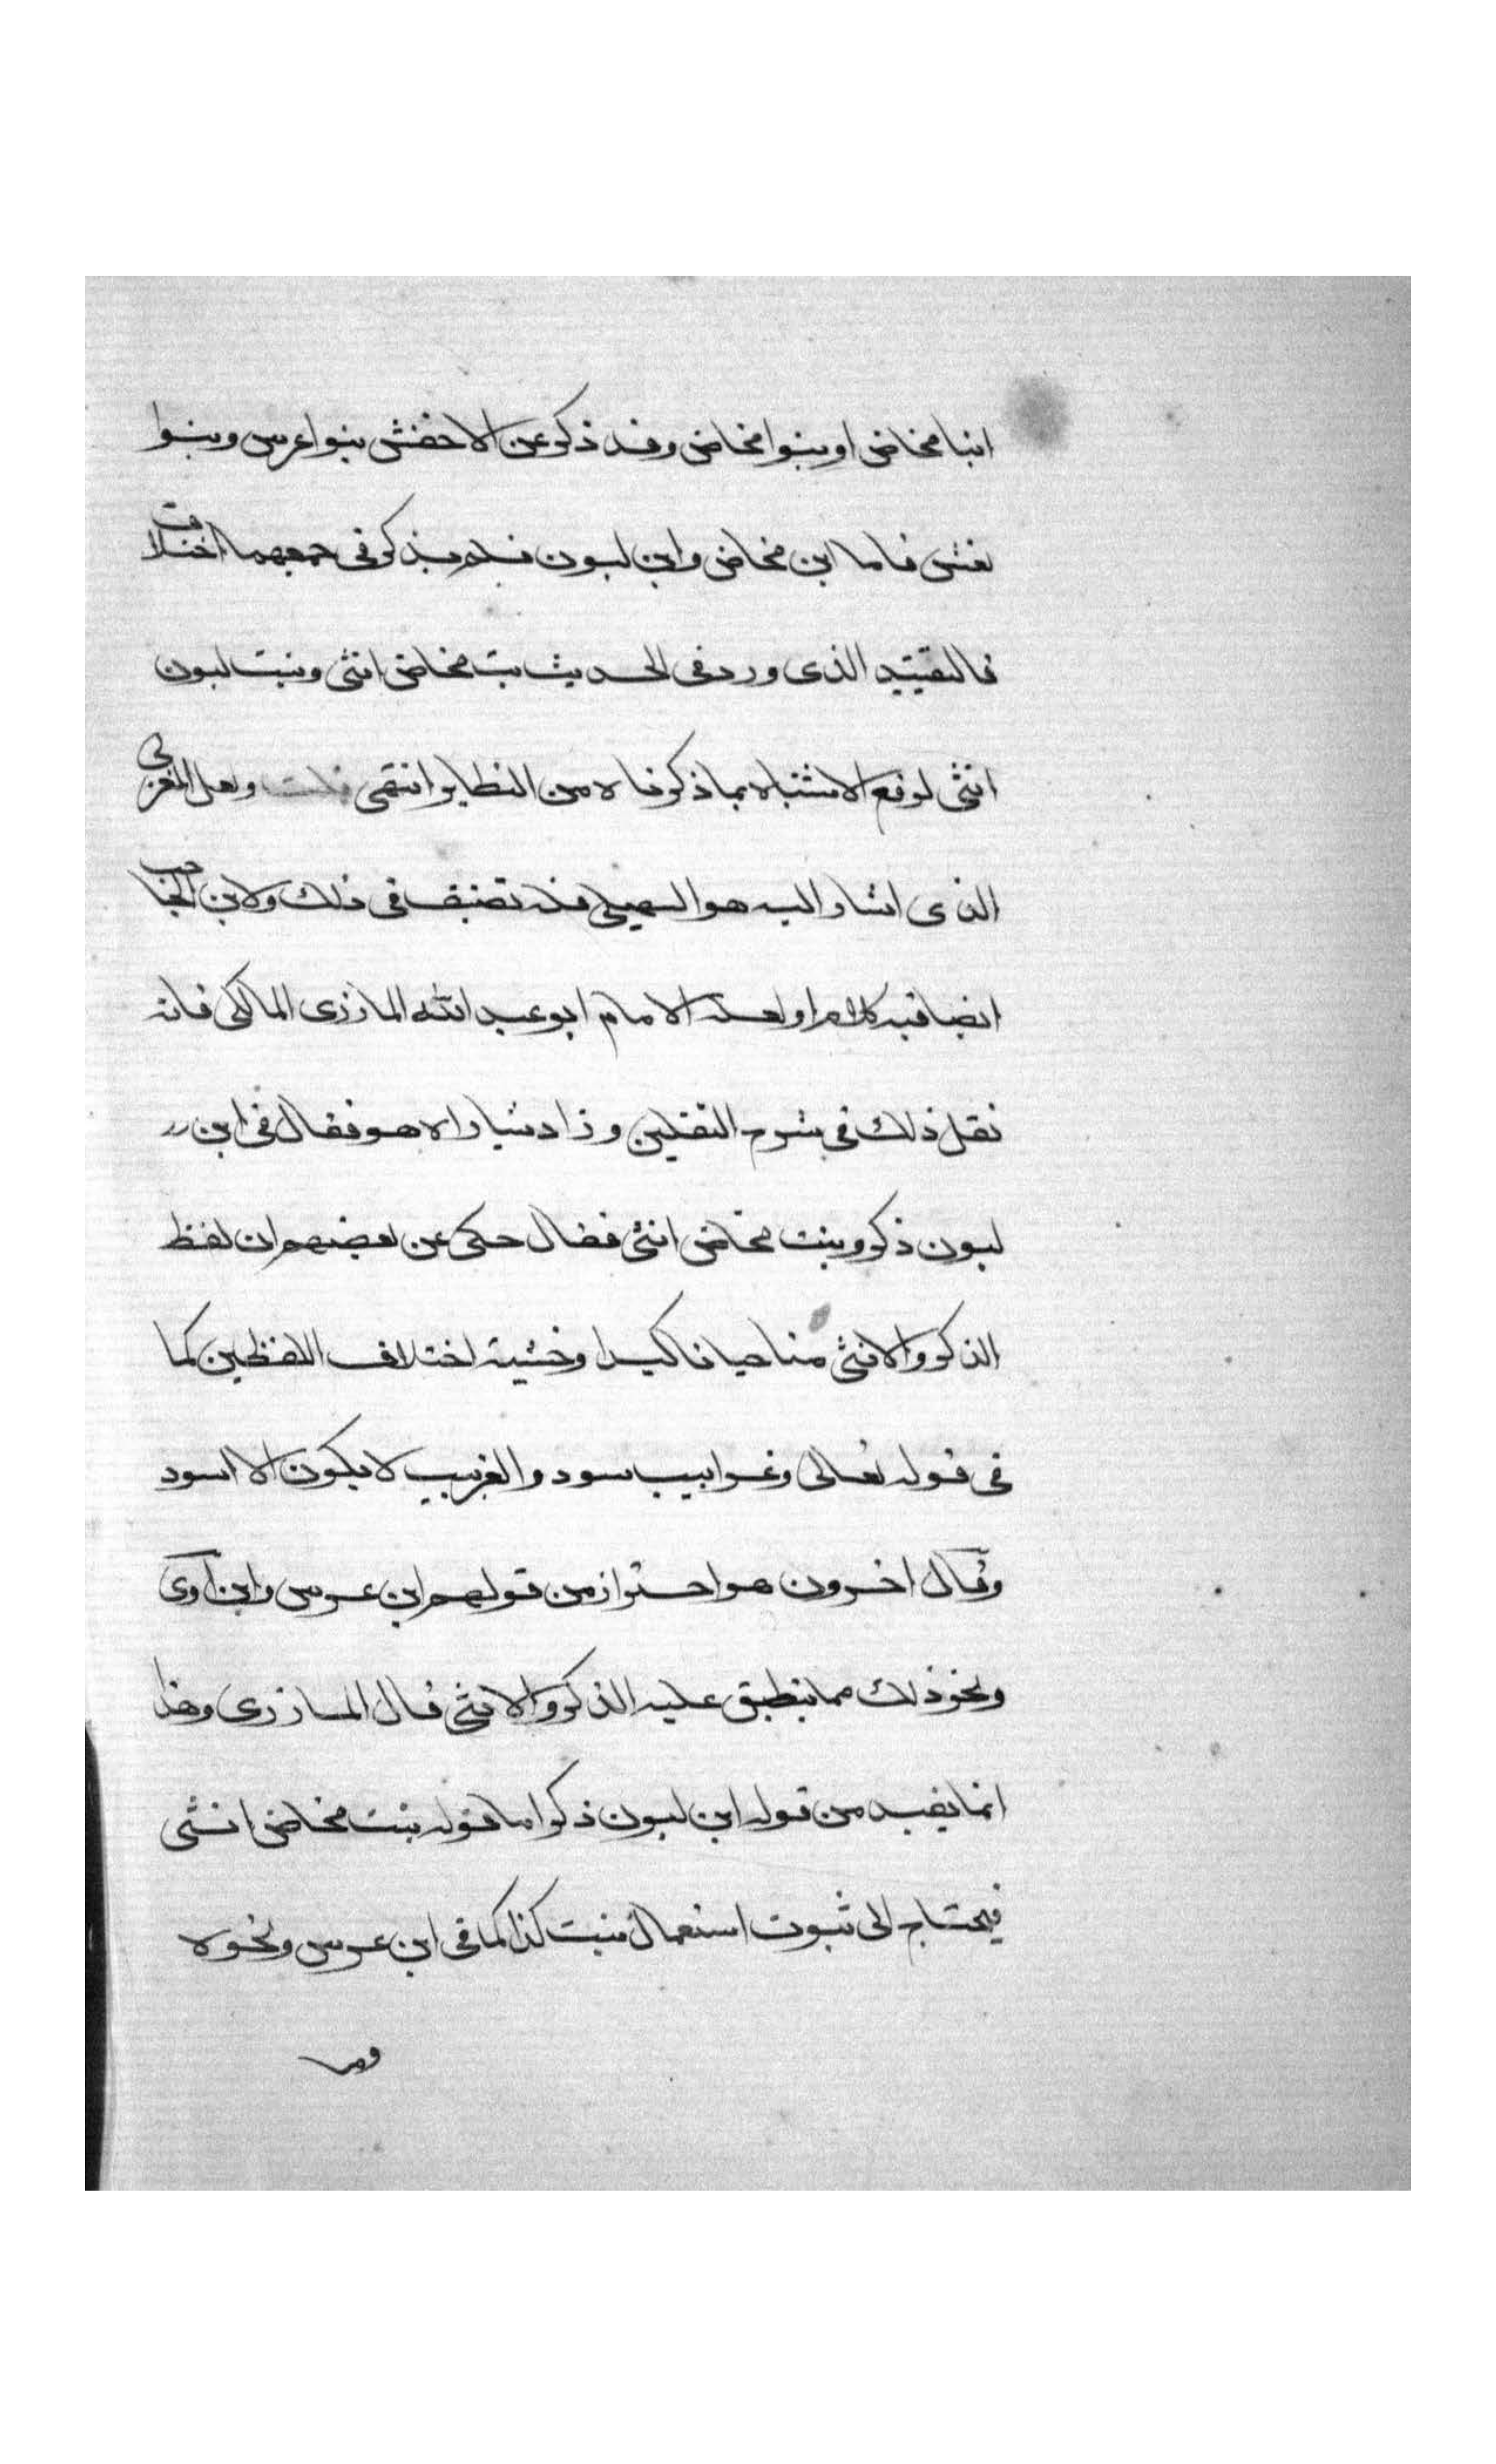 ابنا مخاض او بنوا مخاض وقد ذكر عن الاخفش بنوا عرس وبنوا
نعش فاما ابن مخاض وابن لبون فلم يذكر فى جمعهما اختلاف
فالتقييد الذى ورد فى الحديث بنت مخاض انثى وبنت لبون
انثى لرفع الاشتباه بما ذكرناه من النظاير انتهى قلت ولعل المغربى
الذى اشار اليه هو السهيلى فله تصنيف فى ذلك ولابن الحاجب
ايضا فيه كلام او لعله الامام ابو عبد الله المازرى المالكى فانه
نقل ذلك فى شرح التلقين وزاد شيا راه هو فقال فى ابن
لبون ذكر وبنت مخاض انثى فقال حكى عن بعضهم ان لفظ
الذكر والانثى هنا جيا تاكيدا وخشية اختلاف اللفظين كما
فى قوله تعالى وغرابيب سود والغربيب لا يكون الا اسود
وقال اخرون هو احتراز من قولهم ابن عرس وابن آوى
ونحو ذلك مما ينطبق عليه الذكر والانثى قال المازرى وهذا
انما يفيد من قوله ابن لبون ذكر اما قوله بنت مخاض انثى
فيحتاج الى ثبوت استعمال بنت كذا كما فى ابن عرس ونحوه